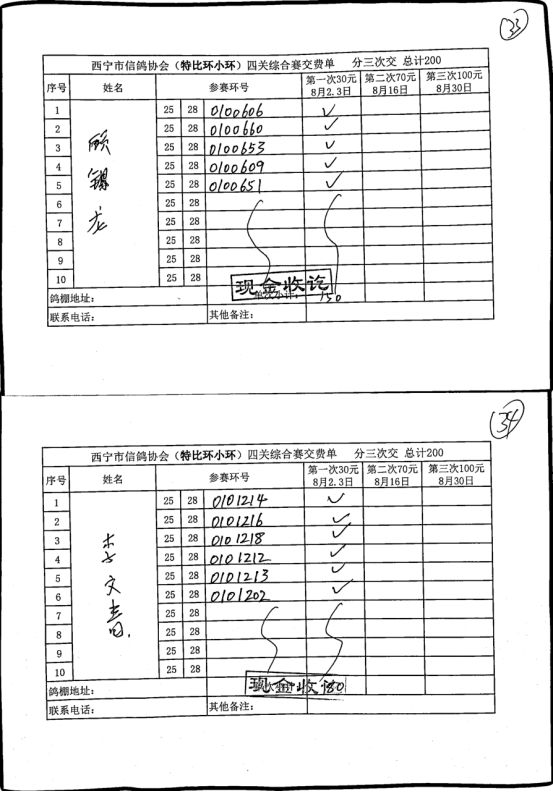 33
西宁市信鸽协会（特比环小环）四关综合赛交费单 分三次交 总计200
序号 姓名 参赛环号 第一次30元 8月2.3日 第二次70元 8月16日 第三次100元 8月30日
顾锡龙
1 25 28 0100606 ✓
2 25 28 0100660 ✓
3 25 28 0100653 ✓
4 25 28 0100609 ✓
5 25 28 0100651 ✓
6 25 28
7 25 28
8 25 28
9 25 28
10 25 28
鸽棚地址： 现金收讫 150
联系电话： 其他备注：
34
西宁市信鸽协会（特比环小环）四关综合赛交费单 分三次交 总计200
序号 姓名 参赛环号 第一次30元 8月2.3日 第二次70元 8月16日 第三次100元 8月30日
李文
1 25 28 0101214 ✓
2 25 28 0101216 ✓
3 25 28 0101218 ✓
4 25 28 0101212 ✓
5 25 28 0101213 ✓
6 25 28 0101202 ✓
7 25 28
8 25 28
9 25 28
10 25 28
鸽棚地址： 现金收 180
联系电话： 其他备注：